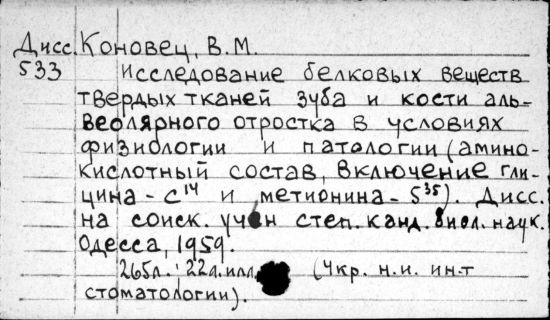 Дисс. Коновец, В.М.
533 Исследование белковых веществ
твердых тканей зуба и кости аль-
веолярного отростка в условиях
физиологии и патологии (амино-
кислотный состав, включение гли-
цина-С¹⁴ и метионина-S³⁵). Дисс.
на соиск. учен степ. канд. биол. наук.
Одесса, 1959.
265л. : 22л. илл. (Укр. н.и. ин.т
стоматологии).